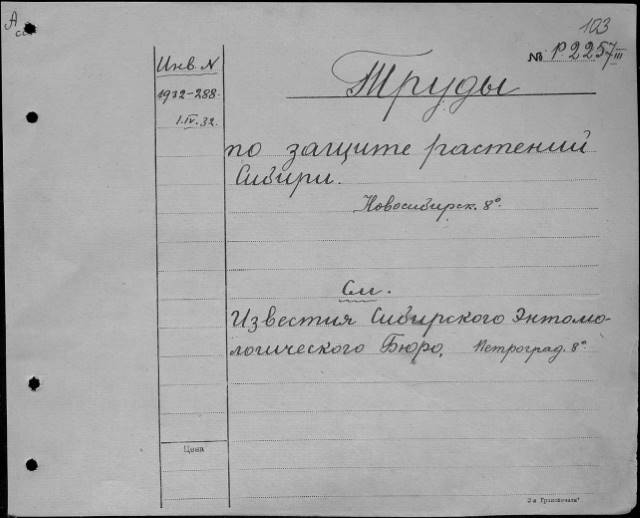 А
103
№ Р.2257 III
Инв N
1932-288.
1.IV.32.
Труды
по защите растений
Сибири.
Новосибирск. 8°.
См.
Известия Сибирского Энтомо-
логического Бюро, Петроград. 8°.
Цена